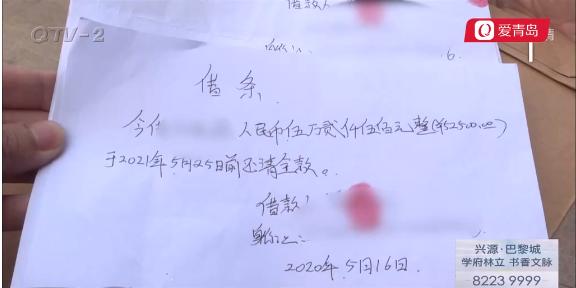 QTV-2
爱青岛
借款人
6.
借条
今借 人民币伍万贰仟伍佰元整(¥52500.00)
于2021年5月25日前还清全款。
借款
2020年5月16日.
兴源·巴黎城
学府林立 书香文脉
8223 9999